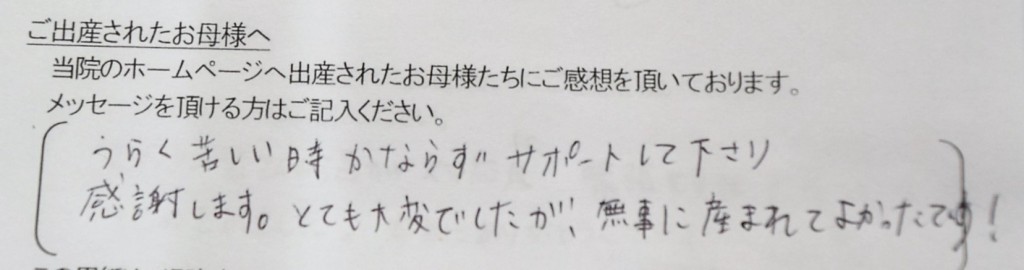 ご出産されたお母様へ
当院のホームページへ出産されたお母様たちにご感想を頂いております。
メッセージを頂ける方はご記入ください。
うらく苦しい時かならずサポートして下さり
感謝します。とても大変でしたが、無事に産まれてよかったです!